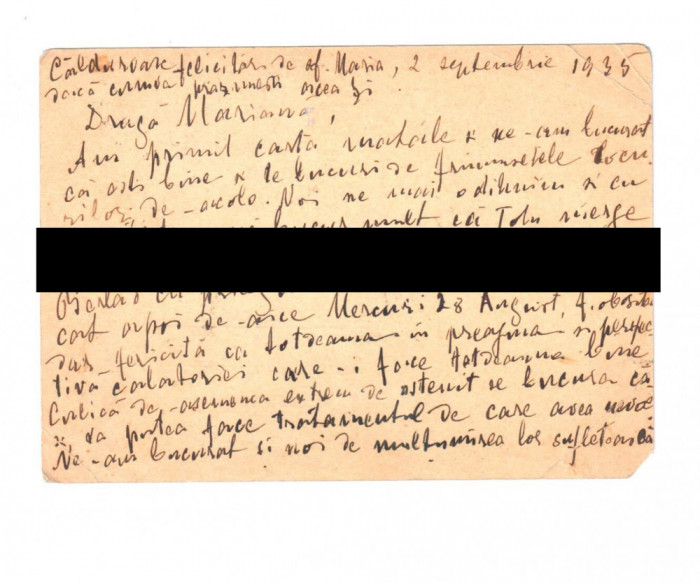 Călduroase felicitări de sf. Maria, 2 septembrie 1935
dacă cumva praznuești acea zi.
Dragă Mariana,
Am primit carta matale și ne-am bucurat
că ești bine și te bucuri de frumusețele locu
rilor de-acolo. Noi ne mai odihnim și cu
mult că Tolu merge
cart apoi de-aice Mercuri 28 August, f. obosită
dar fericită ca totdeauna în preajma și perspec
tiva călătoriei care-i face totdeauna bine
de-asemenea extrem de ostenit se bucura că
va putea face tratamentul de care avea nevoe
Ne-am bucurat și noi de mulțumirea lor sufletească